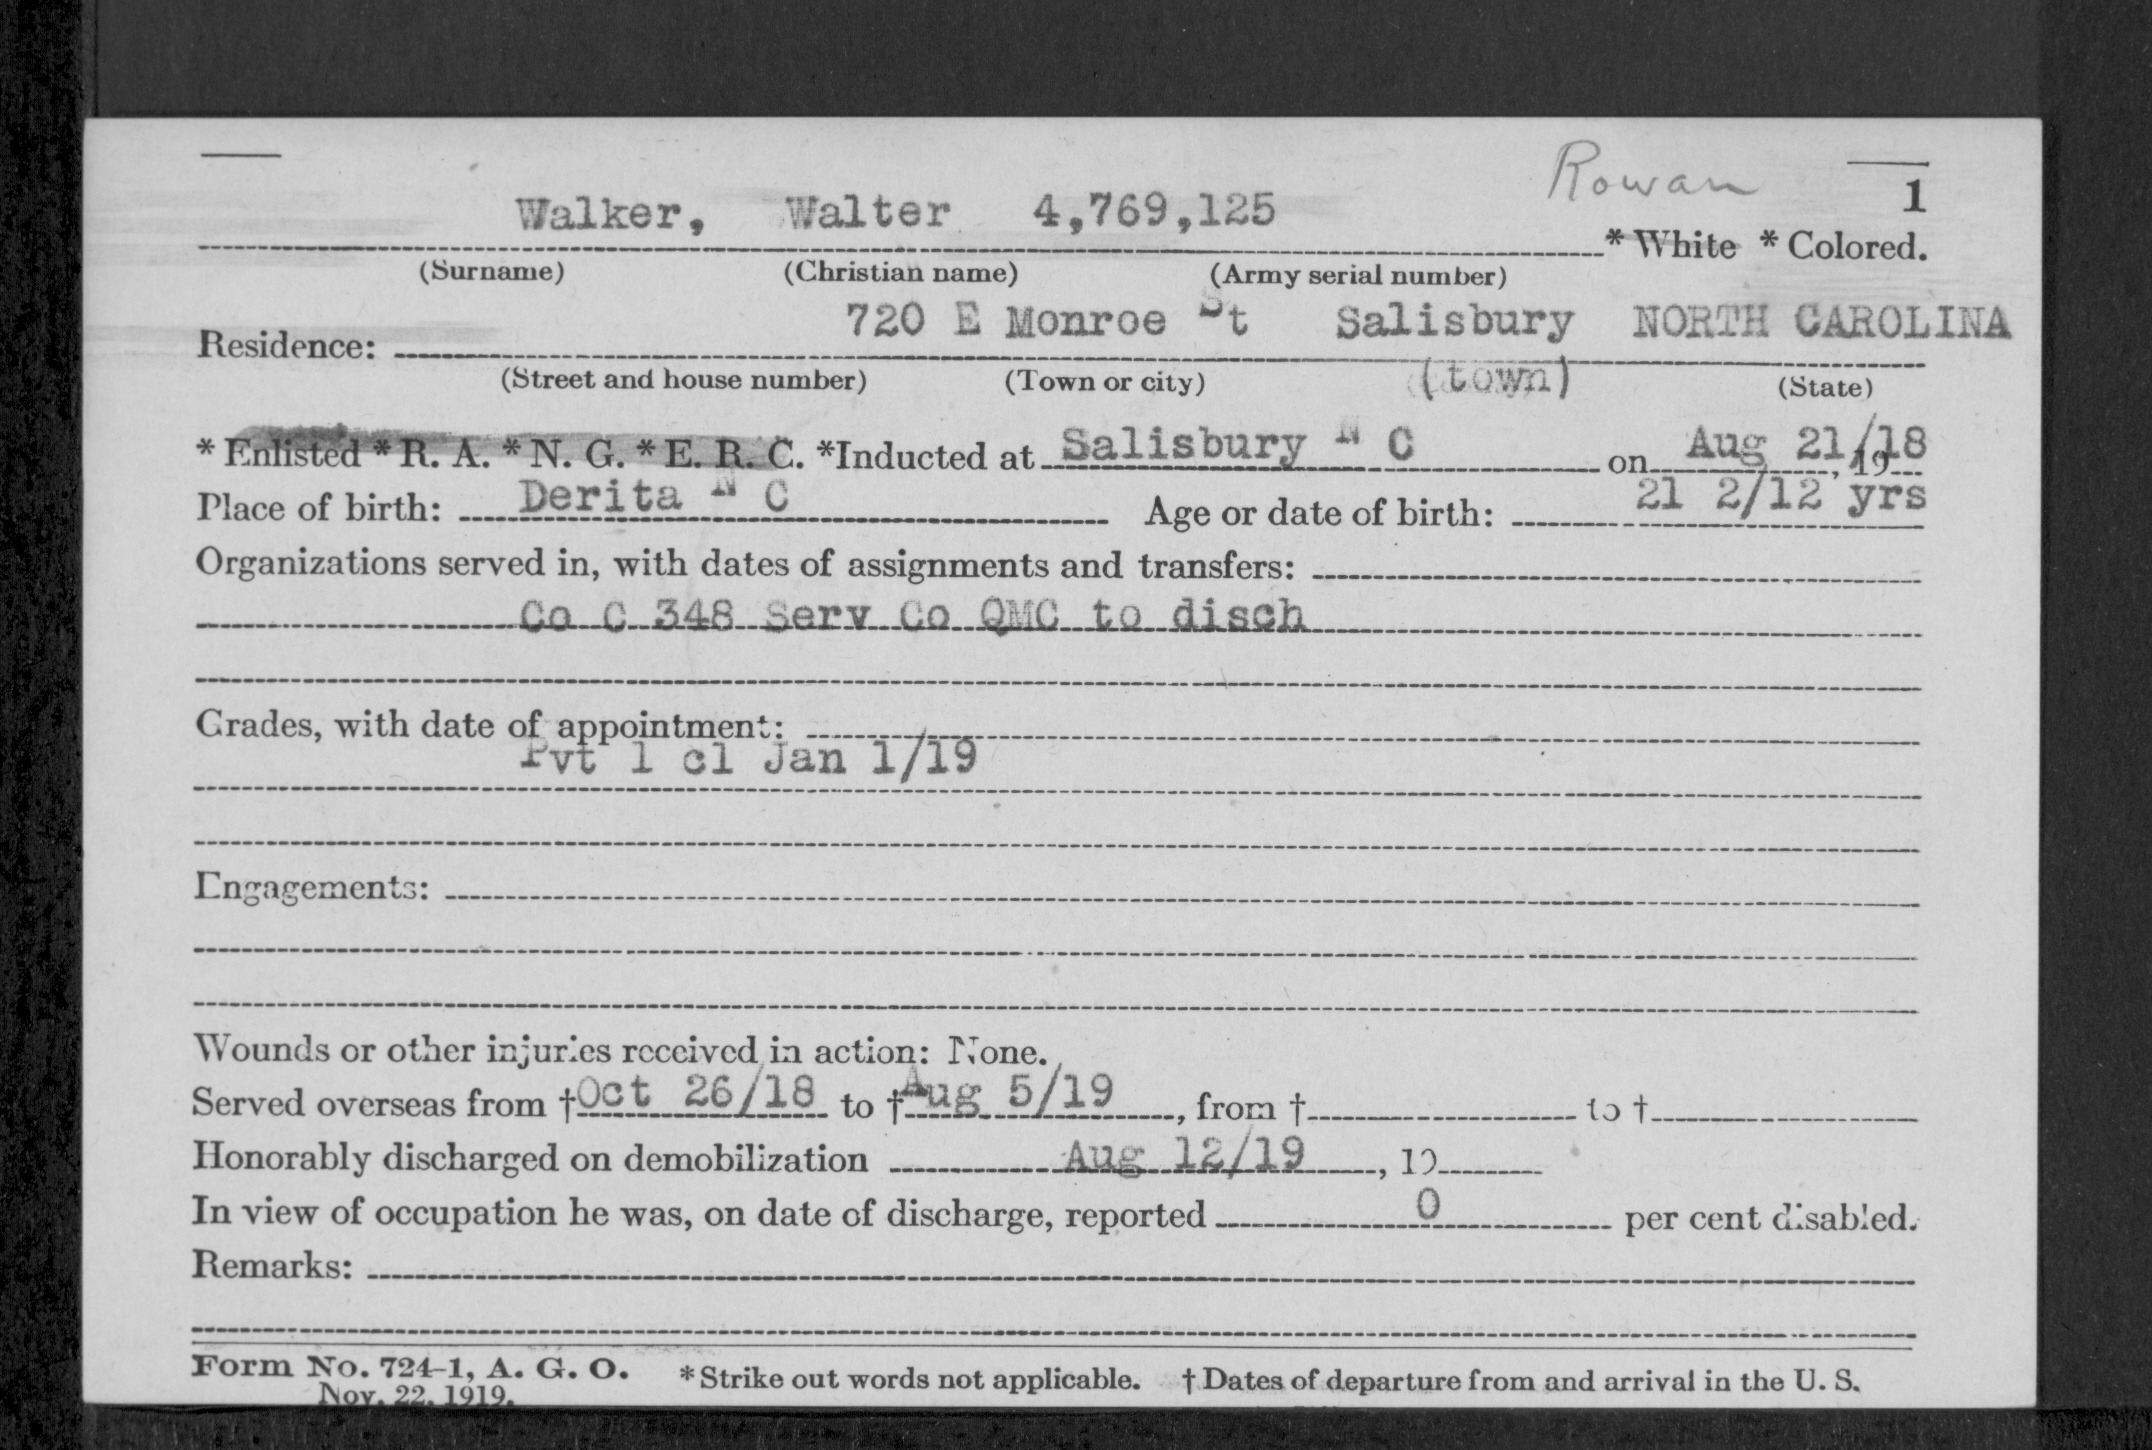 Rowan
1
Walker, Walter 4,769,125 * White * Colored.
(Surname) (Christian name) (Army serial number)
720 E Monroe St Salisbury NORTH CAROLINA
Residence:
(Street and house number) (Town or city) (town) (State)
* Enlisted * R. A. * N. G. * E. R. C. *Inducted at Salisbury N C on Aug 21/18, 19
Place of birth: Derita N C Age or date of birth: 21 2/12 yrs
Organizations served in, with dates of assignments and transfers:
Co C 348 Serv Co QMC to disch
Grades, with date of appointment:
Pvt 1 cl Jan 1/19
Engagements:
Wounds or other injuries received in action: None.
Served overseas from †Oct 26/18 to †Aug 5/19, from † to †
Honorably discharged on demobilization Aug 12/19, 19
In view of occupation he was, on date of discharge, reported 0 per cent disabled.
Remarks:
Form No. 724-1, A. G. O. * Strike out words not applicable. † Dates of departure from and arrival in the U. S.
Nov. 22, 1919.